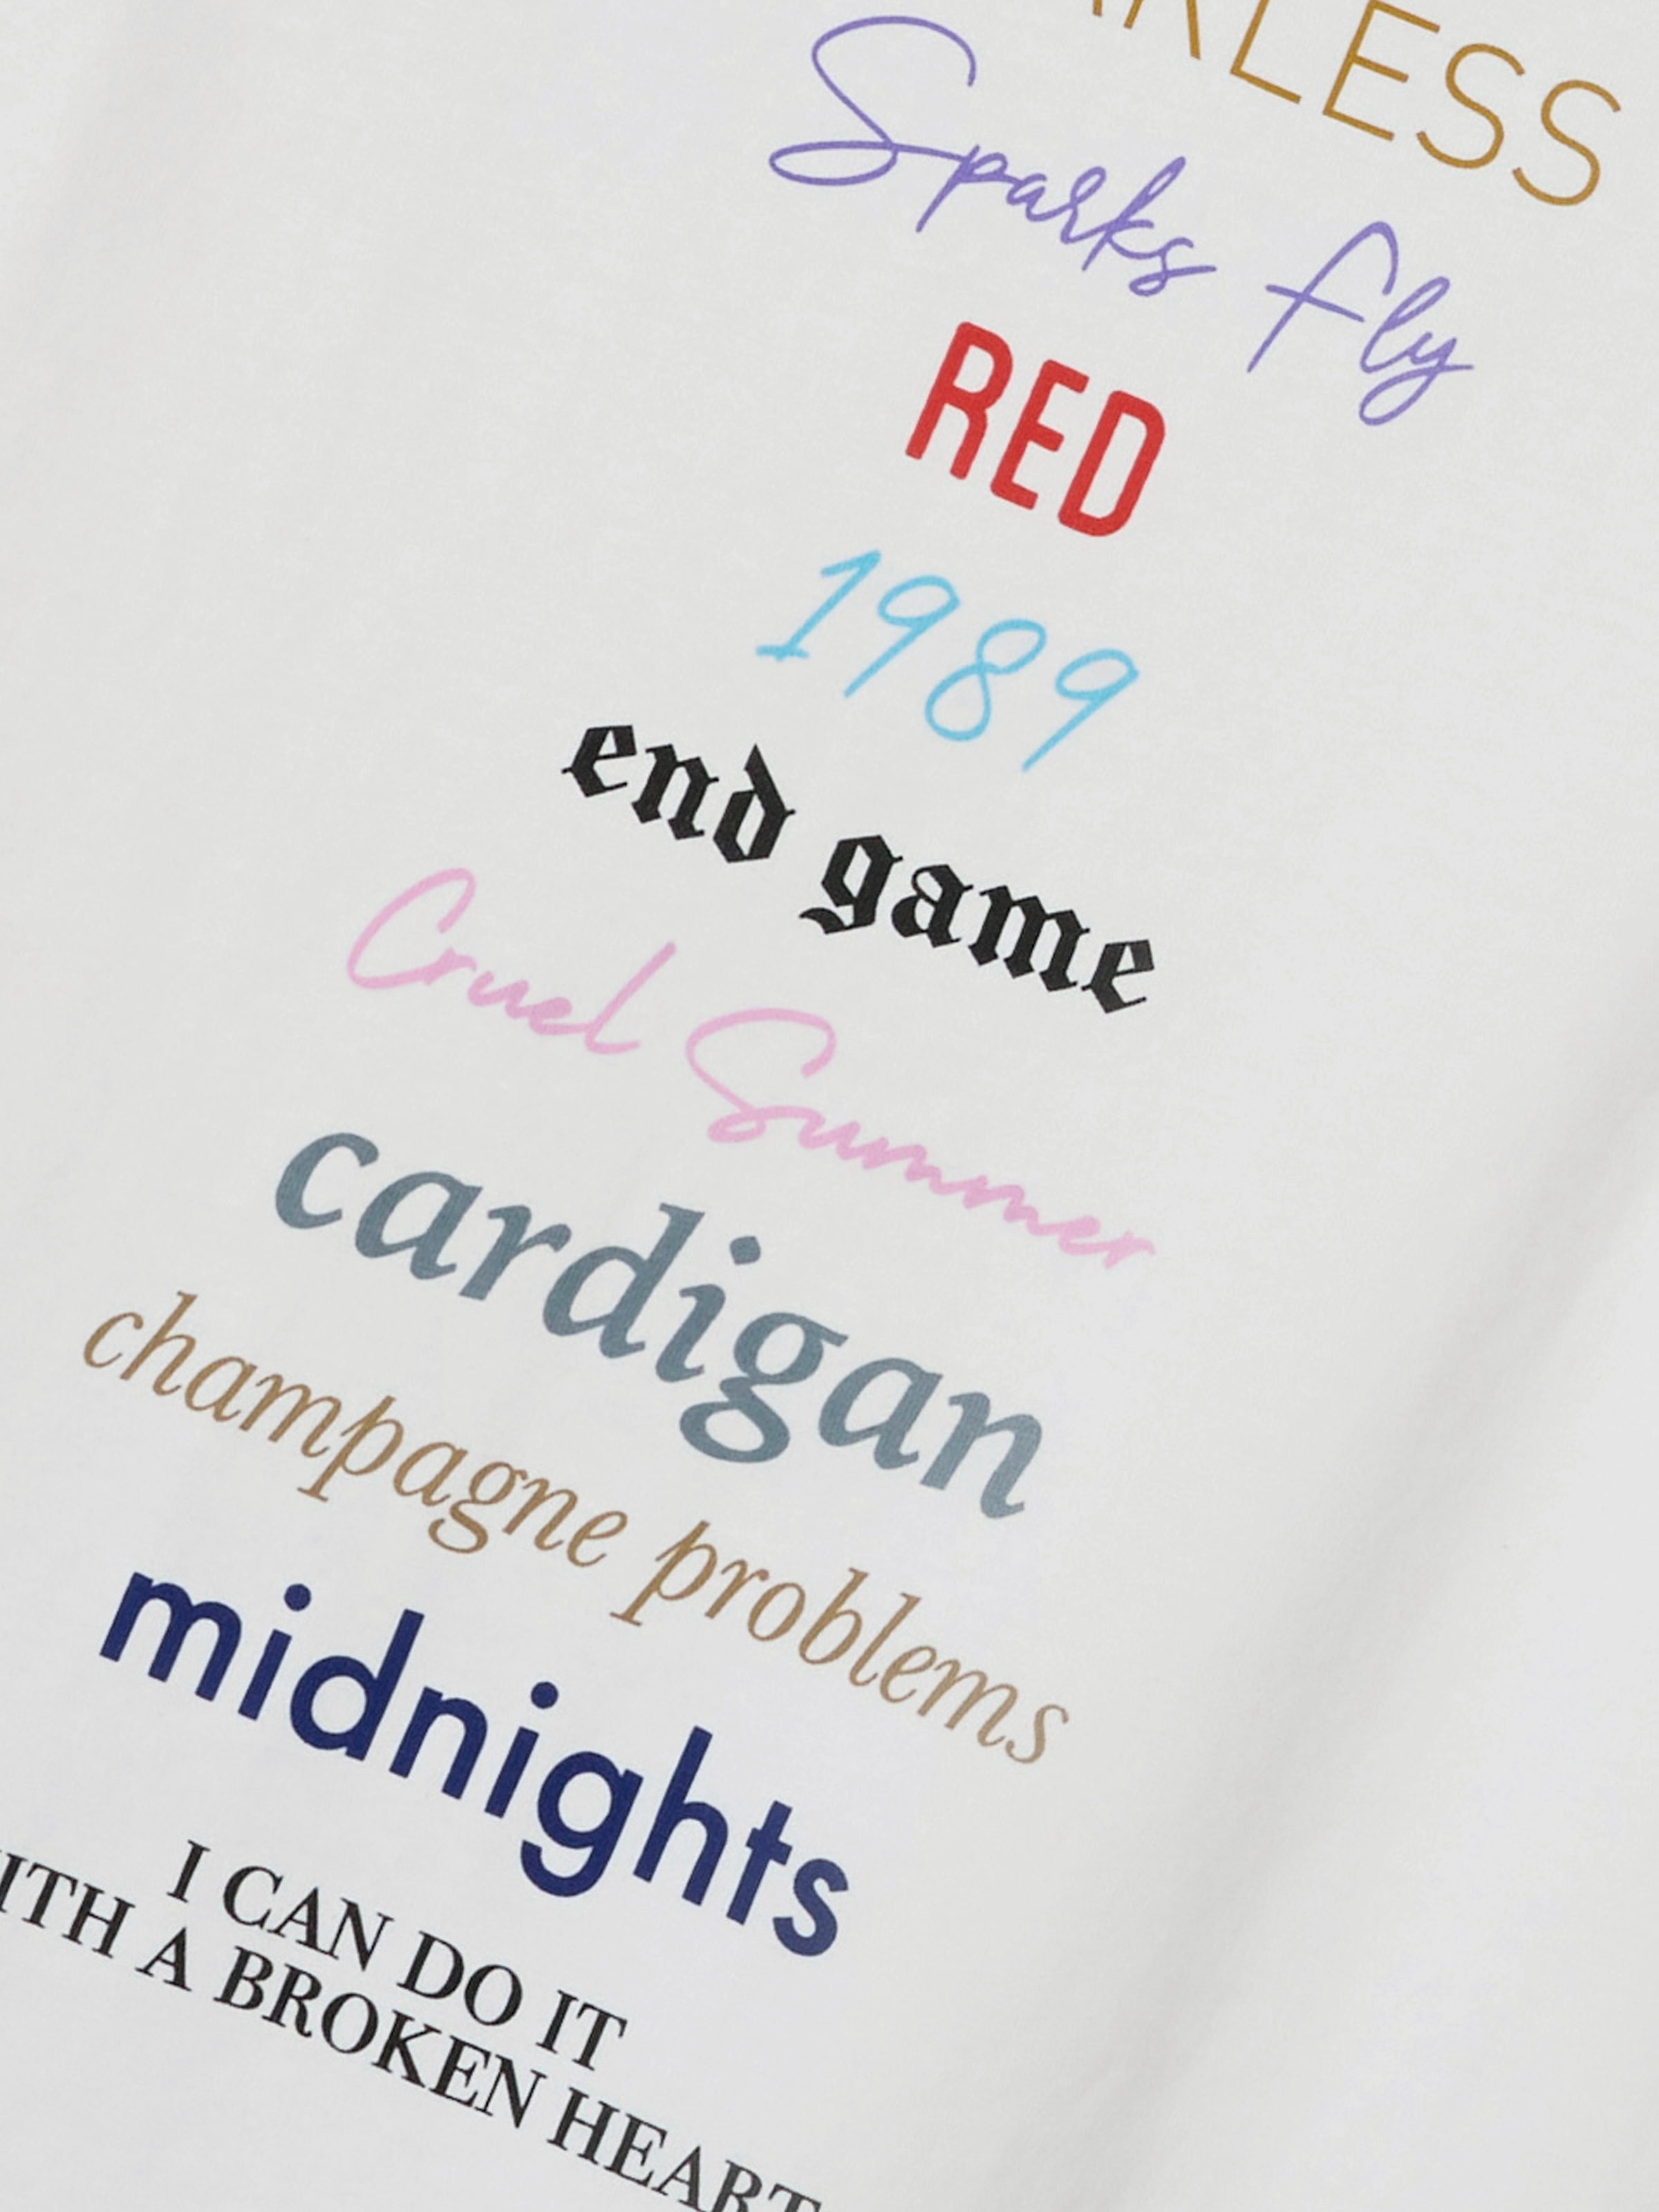 Sparks fly
RED
1989
end game
Cruel Summer
cardigan
champagne problems
midnights
I CAN DO IT
A BROKEN HEART